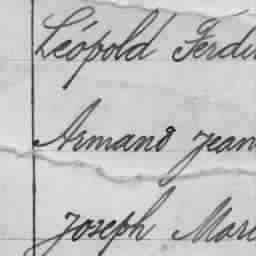 Léopold Ferdi
Armand Jean
Joseph Mare